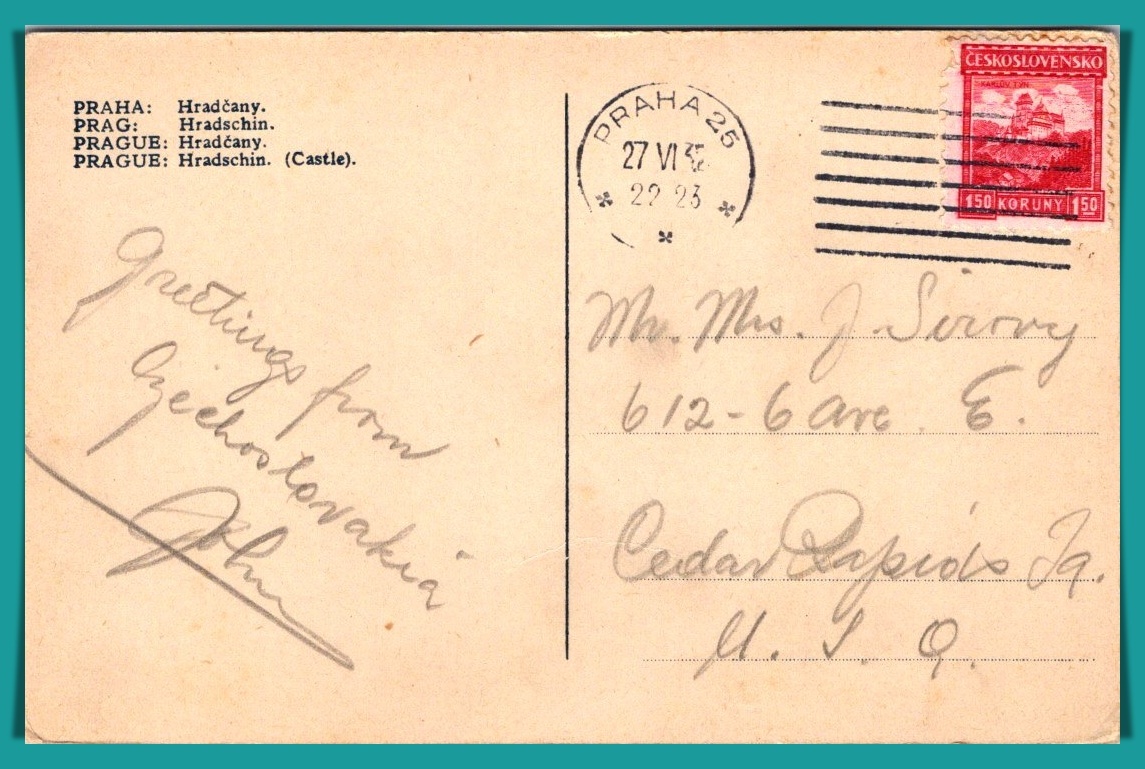 PRAHA: Hradčany.
PRAG: Hradschin.
PRAGUE: Hradčany.
PRAGUE: Hradschin. (Castle).
Greetings from
Czechoslovakia
John
PRAHA 25
27 VI
22 23
ČESKOSLOVENSKO
KARLŮV TÝN
1.50 KORUNY 1.50
Mr. Mrs. J. Sirovy
612-6 Ave. E.
Cedar Rapids Ia.
U. S. A.